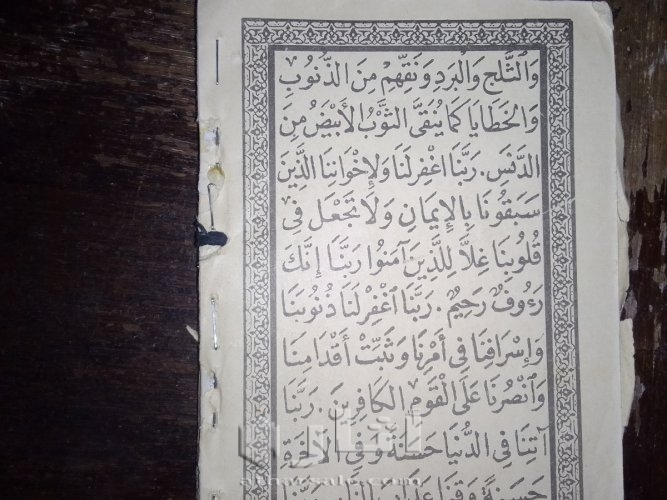 وَالثَّلْجِ وَالْبَرَدِ وَنَقِّهِمْ مِنَ الذُّنُوبِ
وَالْخَطَايَا كَمَا يُنَقَّى الثَّوْبُ الْأَبْيَضُ مِنَ
الدَّنَسِ. رَبَّنَا اغْفِرْ لَنَا وَلِإِخْوَانِنَا الَّذِينَ
سَبَقُونَا بِالْإِيمَانِ وَلَا تَجْعَلْ فِي
قُلُوبِنَا غِلًّا لِلَّذِينَ آمَنُوا رَبَّنَا إِنَّكَ
رَءُوفٌ رَحِيمٌ. رَبَّنَا اغْفِرْ لَنَا ذُنُوبَنَا
وَإِسْرَافَنَا فِي أَمْرِنَا وَثَبِّتْ أَقْدَامَنَا
وَانْصُرْنَا عَلَى الْقَوْمِ الْكَافِرِينَ. رَبَّنَا
آتِنَا فِي الدُّنْيَا حَسَنَةً وَفِي الْآخِرَةِ
حَسَنَةً وَقِنَا عَذَابَ النَّارِ رَبَّنَا